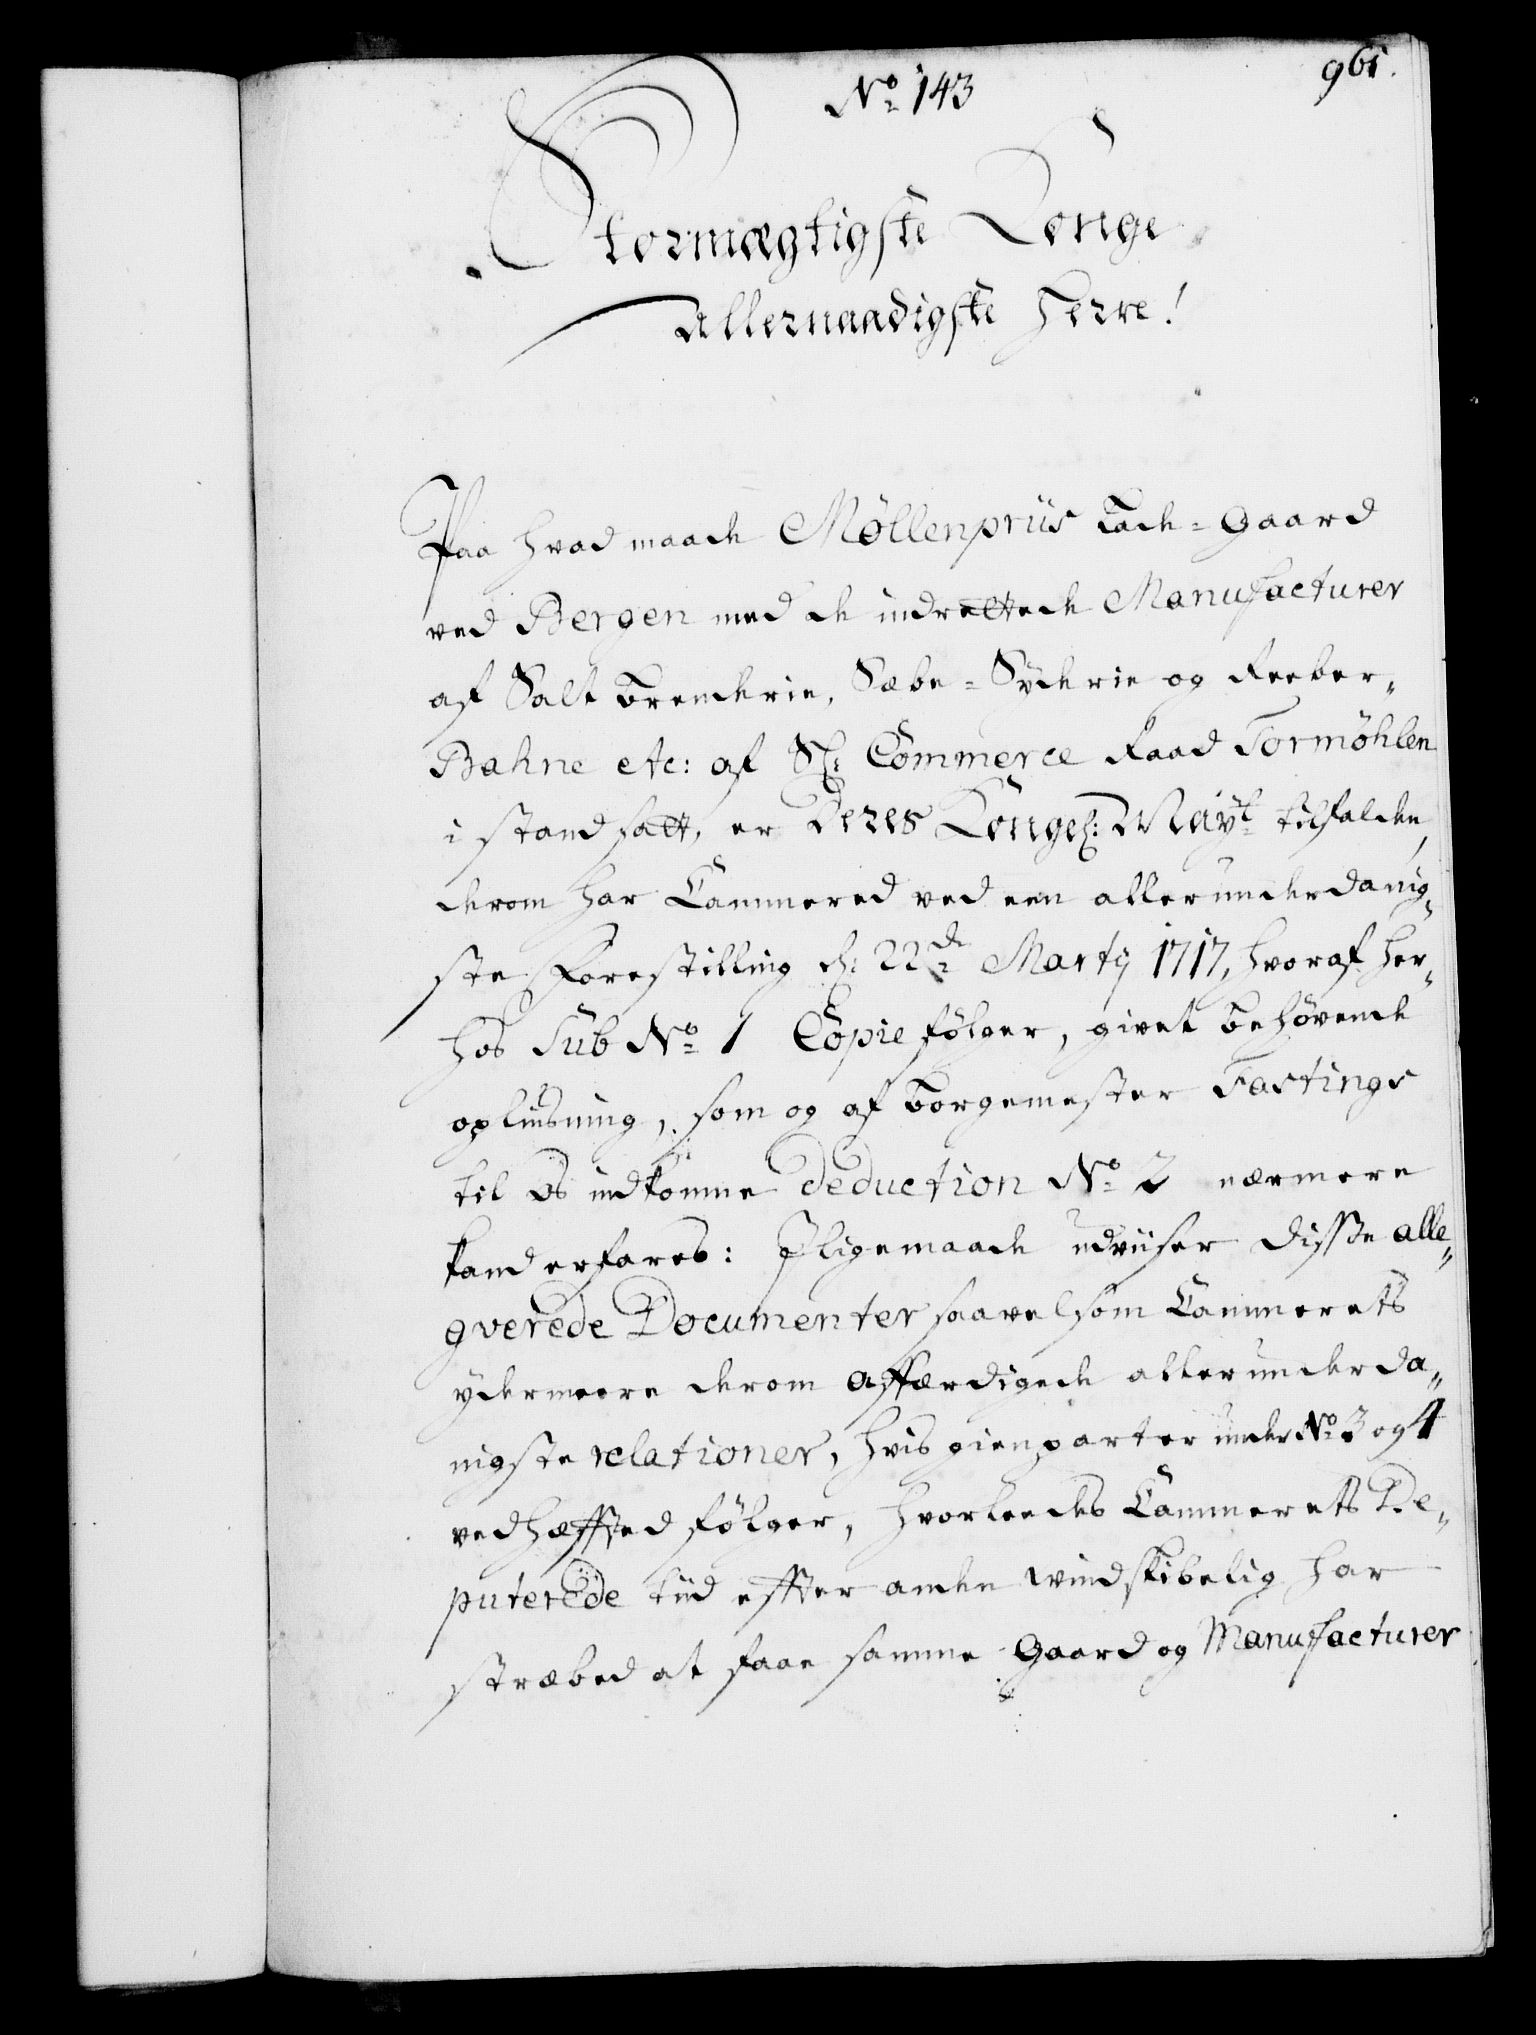 961.
No 143
Stormægtigste Konge
Allernaadigste Herre!
Paa hvad maade Möllenpriis Lade=Gaard
ved Bergen med de indrettede Manufacturer
af Salt brenderie, Sæbe=Syderie og Reeber„
Bahne etc: af Sl: Commerce Raad Tormöhlen
i stand satt, er Deres Kongel: Mayt tilfalden,
derom har Cammered ved een allerunderdanig„
ste Forestilling d: 22de Martij 1717, hvoraf her„
hos Sub No 1 Copie fölger, givet behövende
opliusning, som og af borgemester Fastings
til os indkomne deduction No 2 nærmere
kand erfares: Iligemaade udviiser disse alle„
gverede Documenter saavelsom Cammerets
ydermeere derom affærdigede allerunderda„
nigste relationer, hvis gienparter under No 3 og 4
vedhæffted fölger, hvorleedes Cammerets De„
puterede tiid effter anden windskibelig har
stræbed at faae samme Gaard og Manufacturer